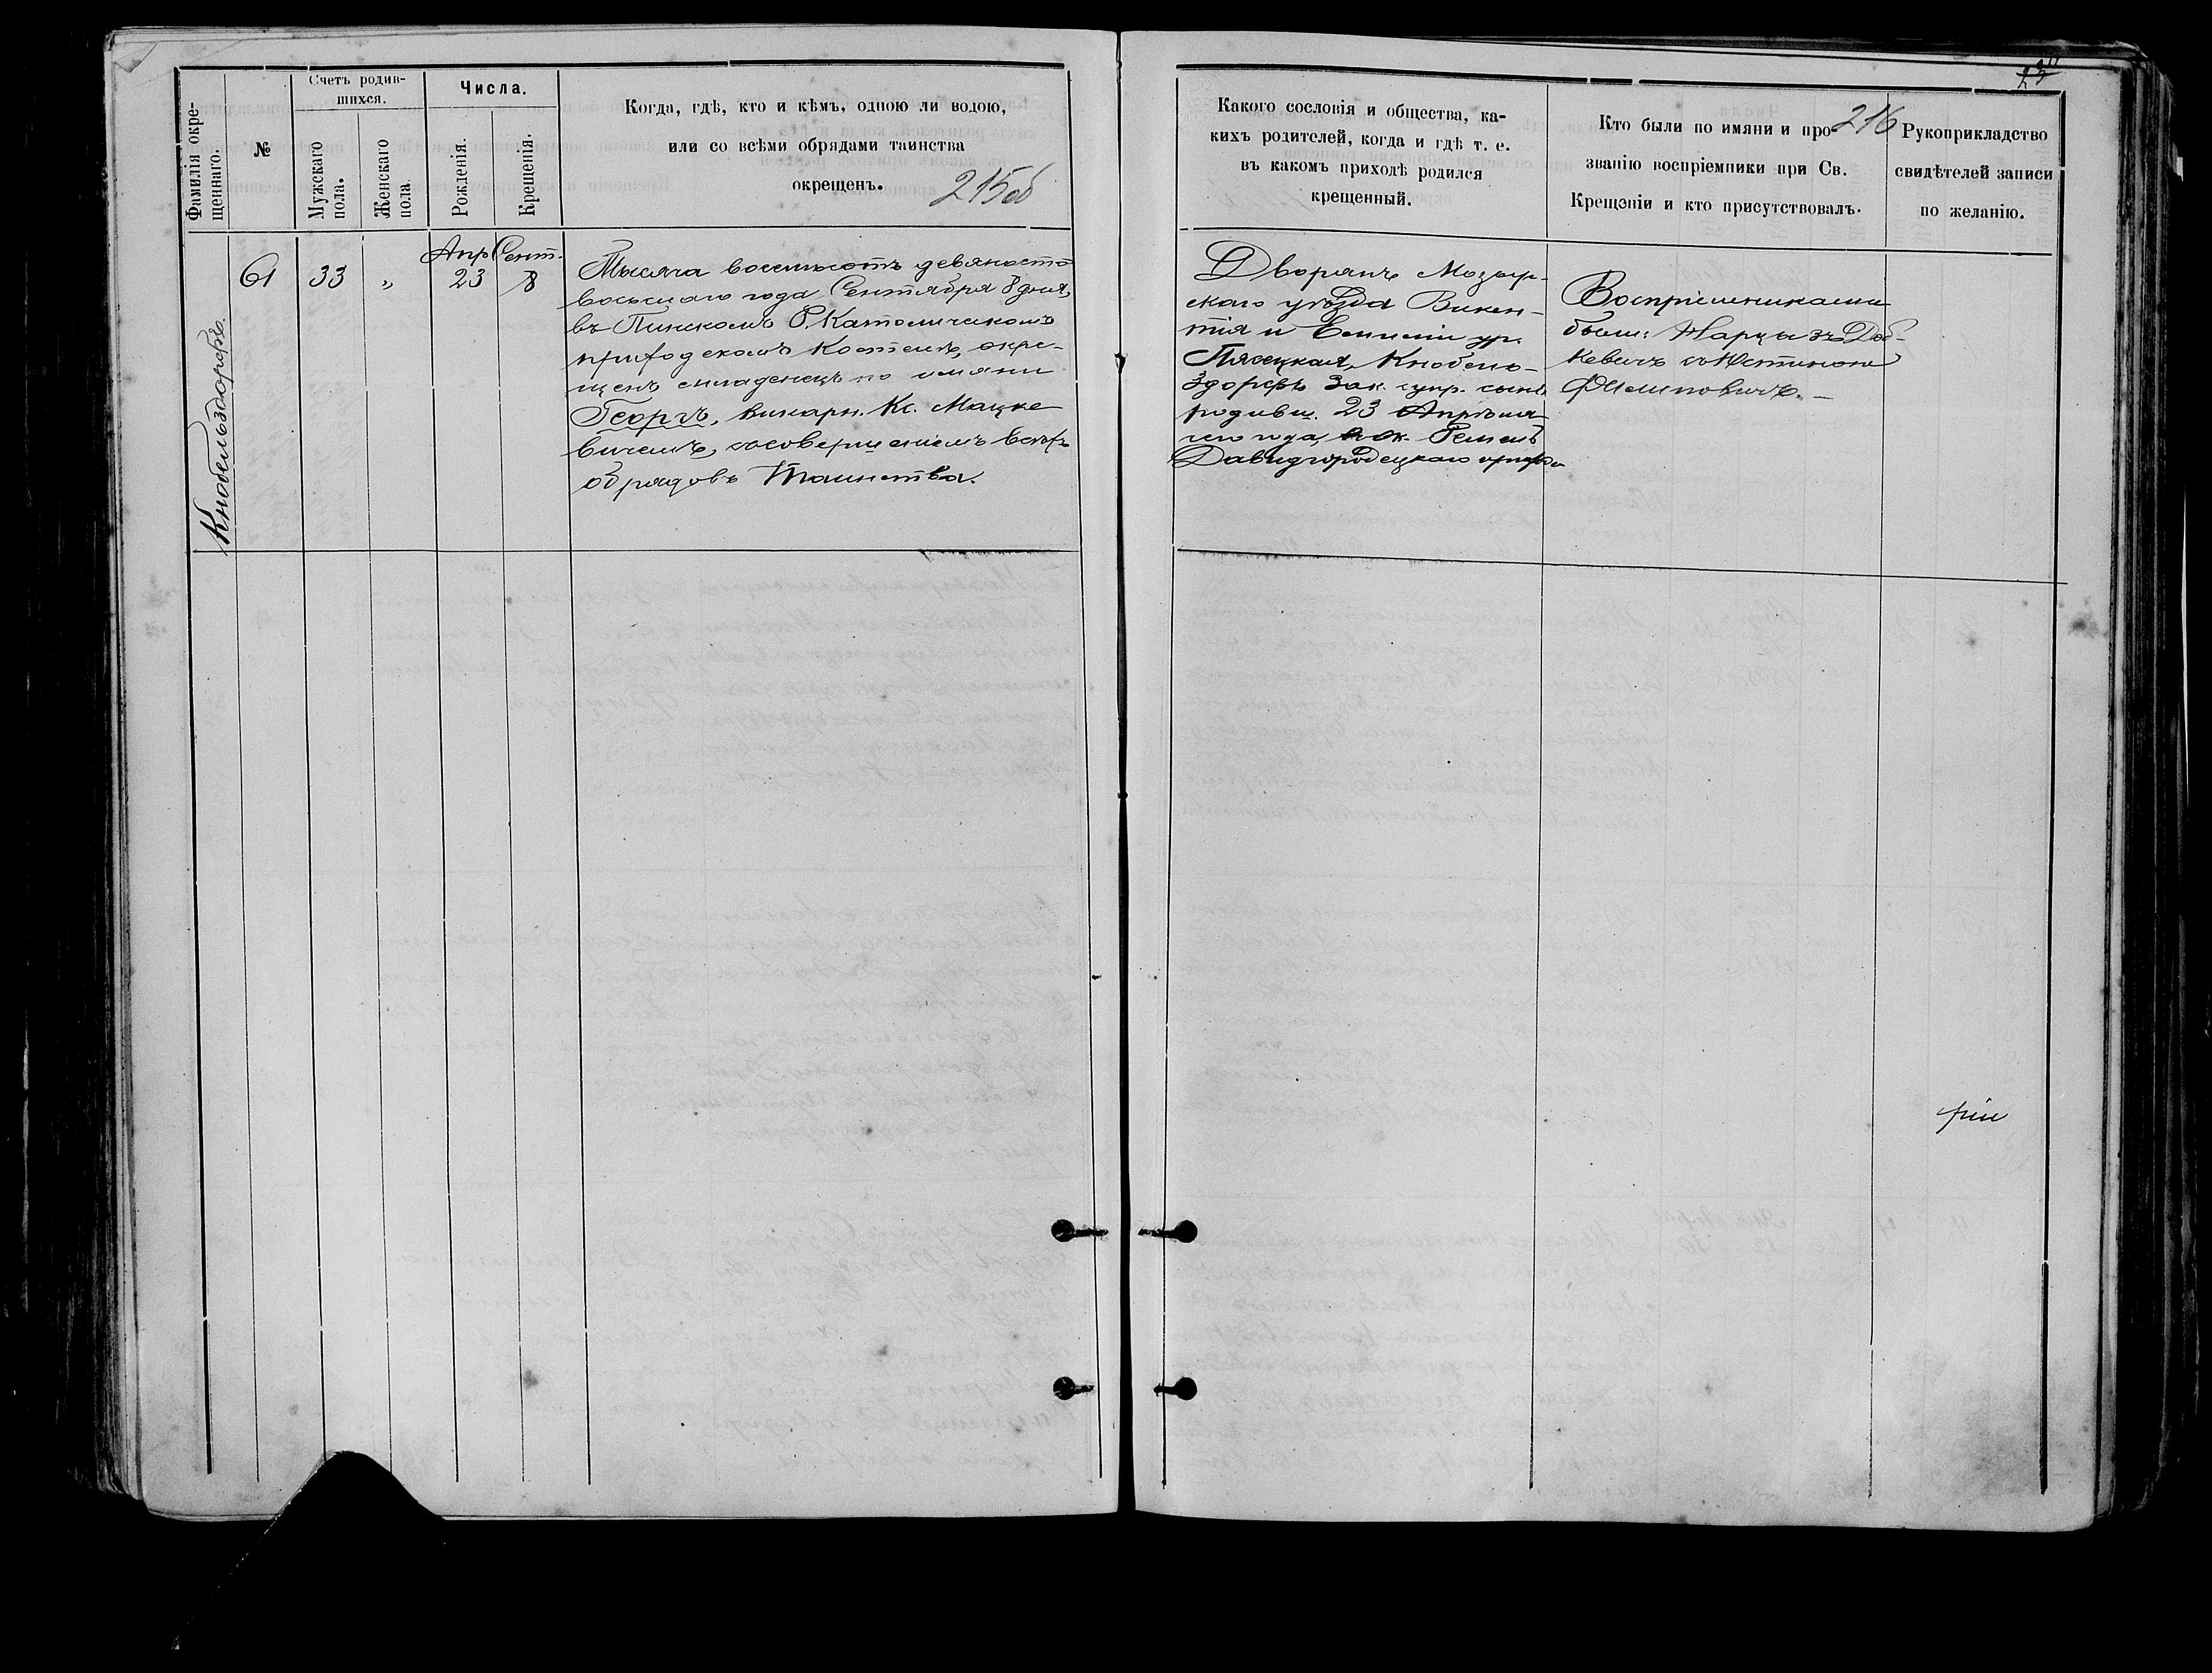 Фамилія окре-
щеннаго.
№
Счетъ родив-
шихся.
Мужскаго
пола.
Женскаго
пола
Числа.
Рожденія.
Крещенія.
Когда, гдѣ, кто и кѣмъ, одною ли водою,
или со всѣми обрядами таинства
окрещенъ.
215об
Кнобельздорфъ.
61
33
"
Апр
23
Сент.
8
Тысяча восемьсотъ девяносто
восьмаго года Сентября 8 дня,
въ Пинскомъ Р. Католическомъ
приходскомъ костелѣ, окре-
щенъ младенецъ по имяни
Георгъ, викарн. Кс. Мацке
вичемъ, со совершеніемъ всѣхъ
обрядовъ Таинства.
23
216
Какого сословія и общества, ка-
кихъ родителей, когда и гдѣ т. е.
въ какомъ приходѣ родился
крещенный.
Кто были по имяни и про-
званію воспріемники при Св.
Крещэніи и кто присутствовалъ.
Рукоприкладство
свидѣтелей записи
по желанію.
Дворянъ Мозыр-
скаго уѣзда Викен-
тія и Емиліи ур.
Пясецкая, Кнобель-
здорфъ зак. супр. сынъ
родивш. 23 Апрѣля
сего года, в ок.
Давидгородецкаго прихода
Воспріемниками
были: Нарцызъ Доб-
кевичъ съ Юстиною
Филиповичъ. —